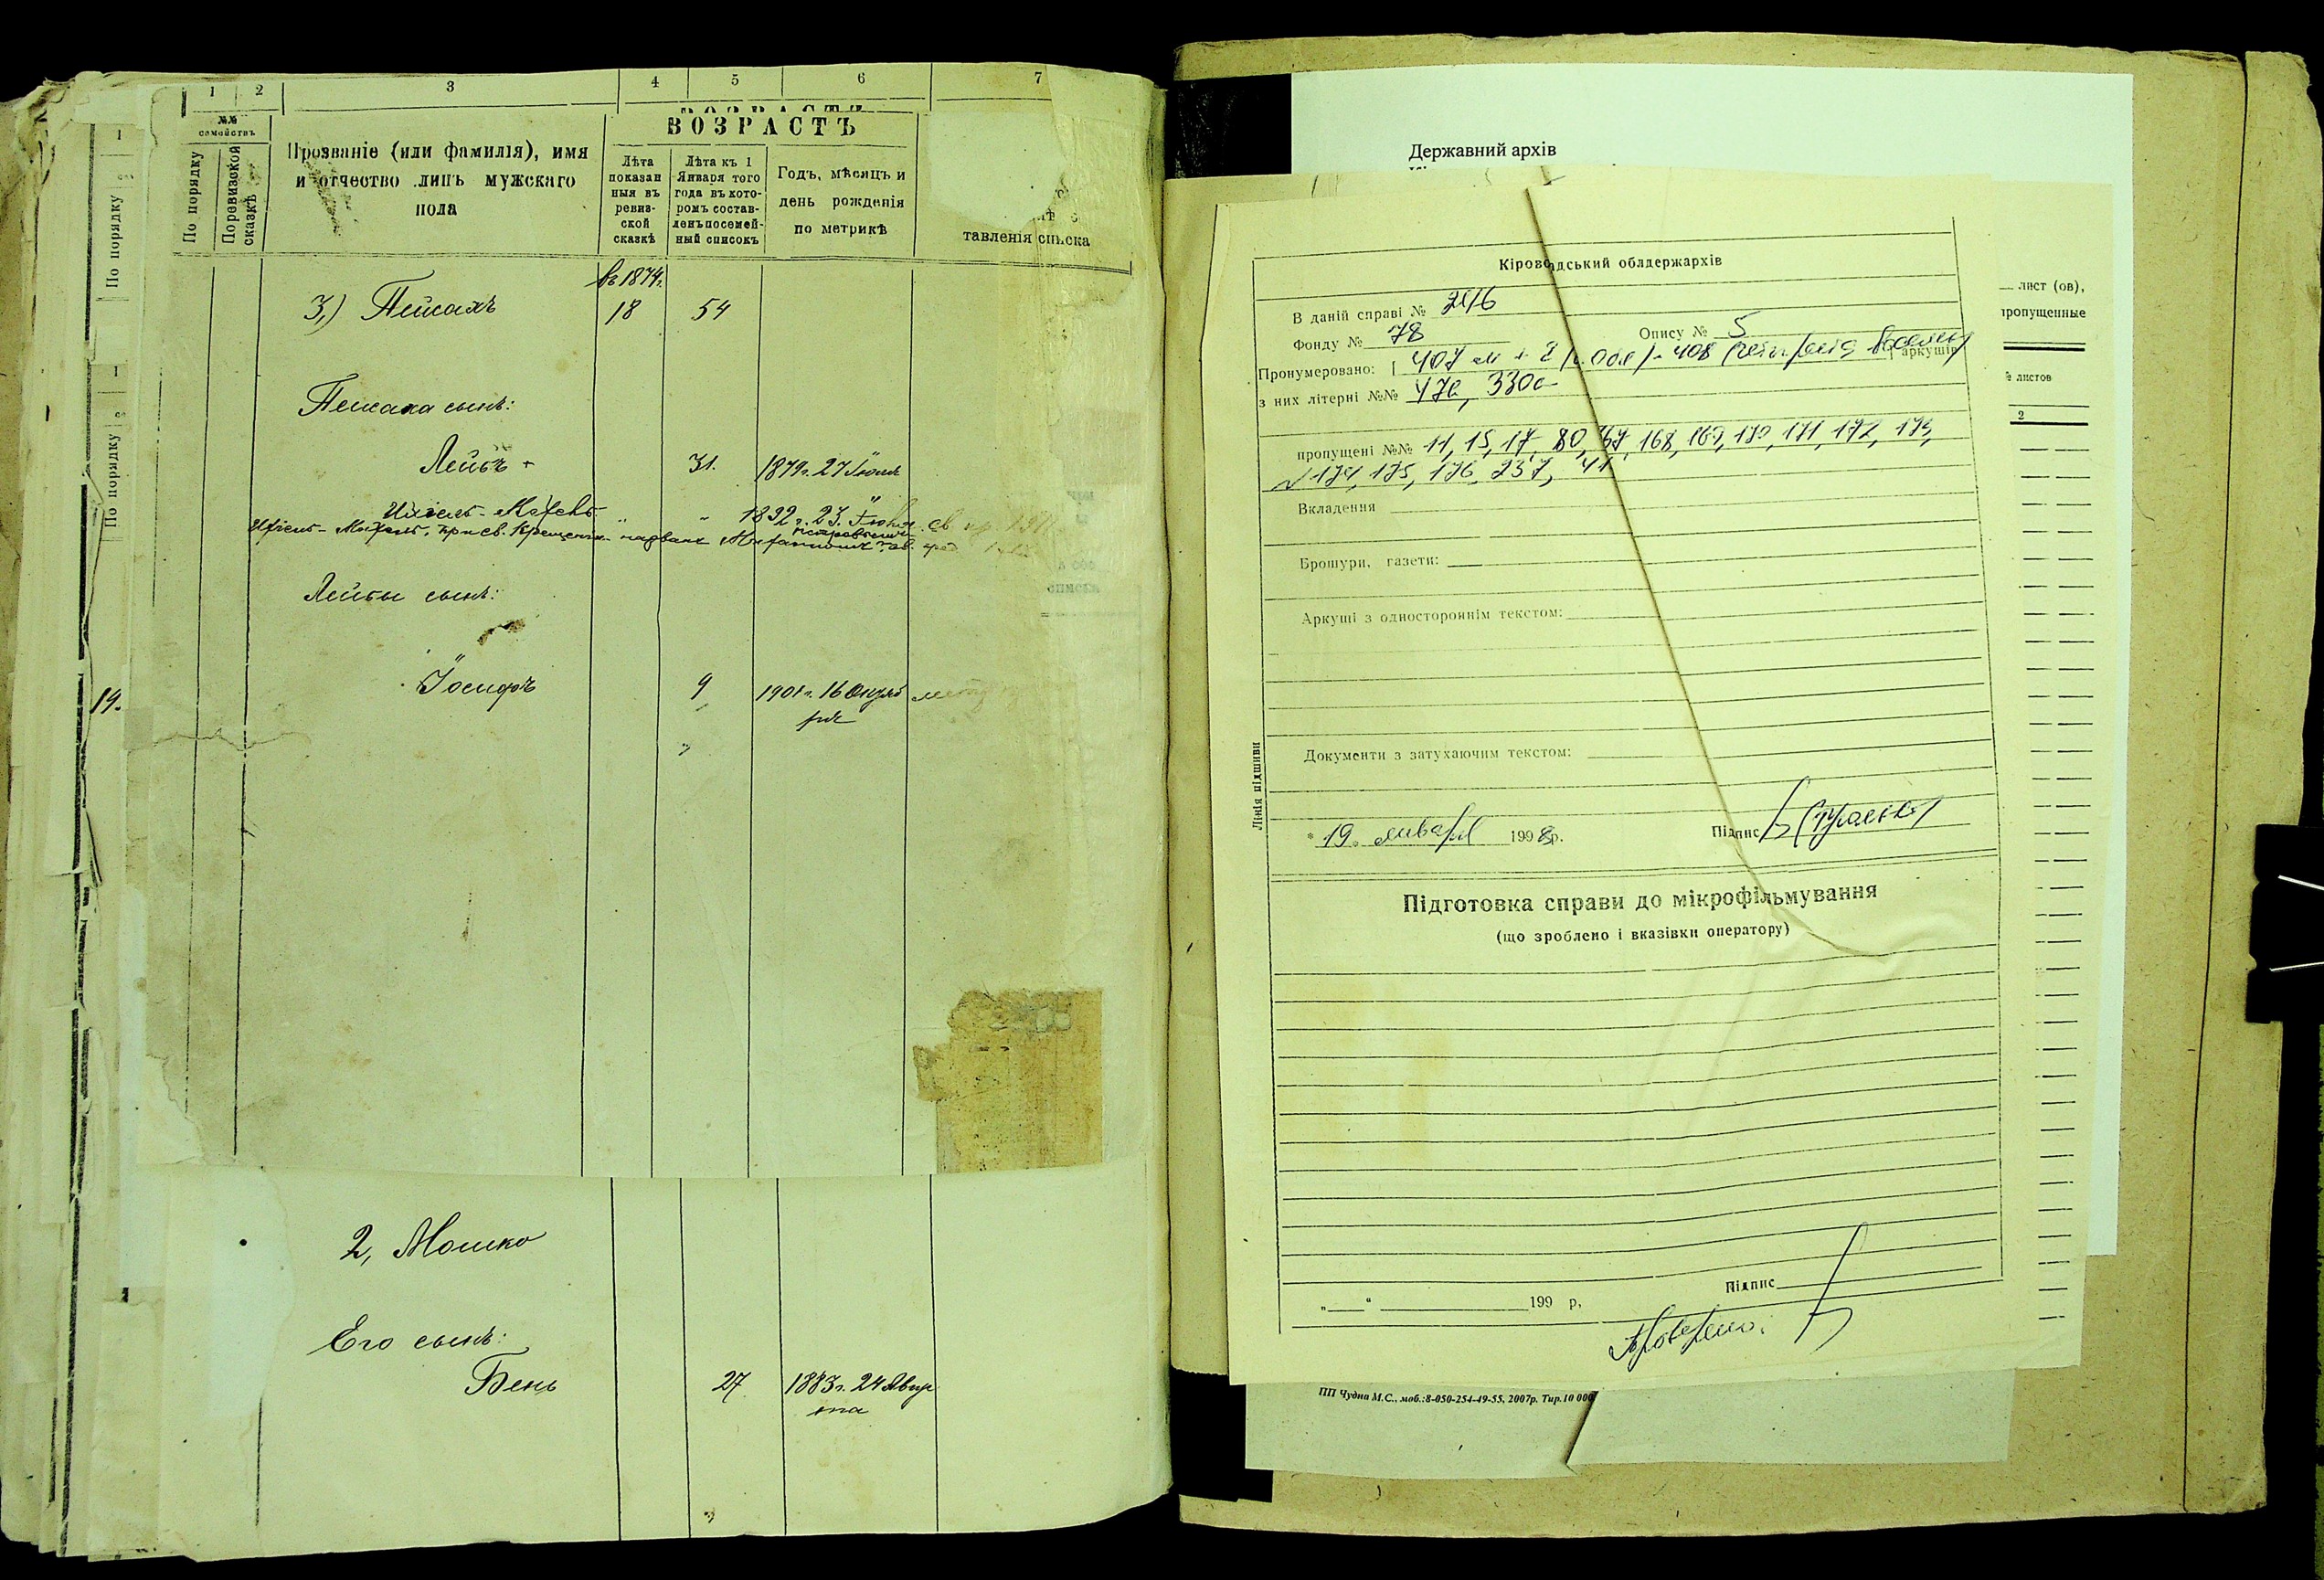 1 2 3 4 5 6 7
№№ семействъ
По порядку
По ревизской сказкѣ
Прозваніе (или фамилія), имя
и отчество лицъ мужскаго
пола
ВОЗРАСТЪ
Лѣта
показан
ныя въ
ревиз-
ской
сказкѣ
Лѣта къ 1
Января того
года въ кото-
ромъ состав-
ленъ посемей-
ный списокъ
Годъ, мѣсяцъ и
день рожденія
по метрикѣ
тавленія списка
1
По порядку
1
По порядку
въ 1874 г.
3,) Пейсахъ 18 54
Пейсаха сынъ:
Лейбъ + 31. 1879 г. 27 Іюля
1892 г. 23
при св. Крещении названъ
Лейбы сынъ:
19.
Іосифъ 9 1901 г. 16 Октяб
ря
2, Мошко
Его сынъ:
Бень 27 1883 г. 24 Авгу
ста
Державний архів
Кіровоградський облдержархів
В даній справі №
Фонду № 78 Опису № 5
Пронумеровано: 407 аркушів
з них літерні №№ 47а, 330а
пропущені №№ 11, 15, 17, 80, 167, 168, 169, 170, 171, 172, 173,
174, 175, 176, 237, 41
Вкладення
Брошури, газети:
Аркуші з одностороннім текстом:
Документи з затухаючим текстом:
Лінія підшиви
19. января 1998р. Підпис
Підготовка справи до мікрофільмування
(що зроблено і вказівки оператору)
Підпис
„ “ 199 р.
Проверено.
лист (ов),
пропущенные
листов
2
ПП Чудна М.С., моб.:8-050-254-49-55, 2007р. Тир.10 000